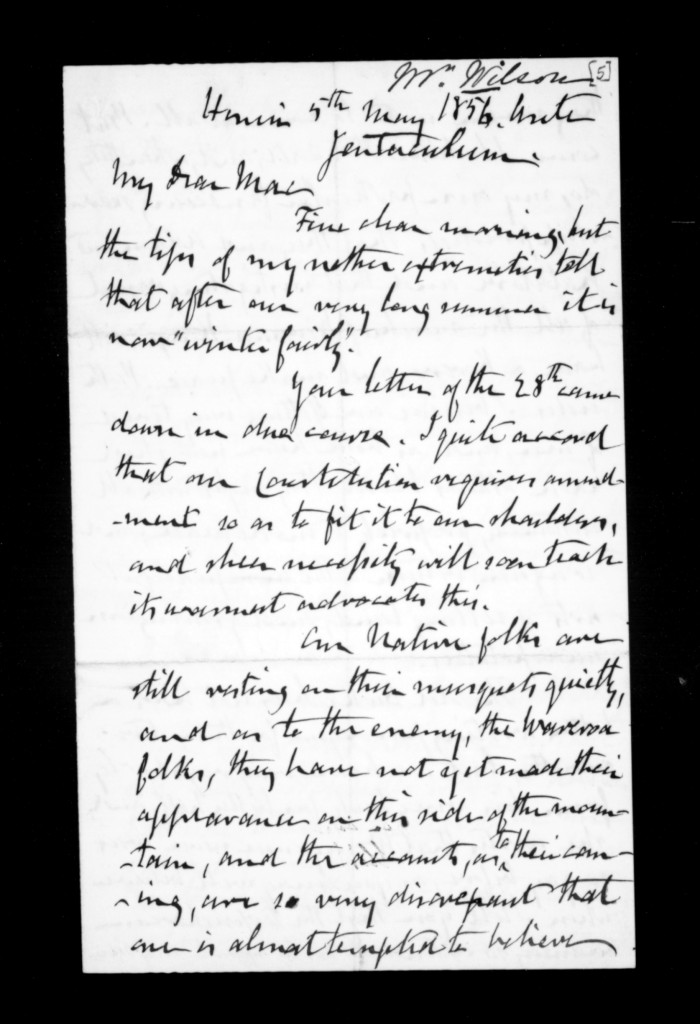 Mr. Wilson [5]
5th May 1856. Ante
Jentaculum.
My Dear Mac
Fine clear morning, but
the tips of my nether extremities tell
that after our very long summer it is
now "winter fairly."
Your letter of the 28th came
down in due course. I quite accord
that our Constitution requires amend-
-ment so as to fit it to our shoulders,
and sheer necessity will soon teach
its warmest advocates this.
Our Native folks are
still resting on their musquets quietly,
and as to the enemy, the Wairoa
folks, they have not yet made their
appearance on this side of the moun-
-tain, and the accounts, as to their com-
-ing, are so very discrepant that
one is almost tempted to believe